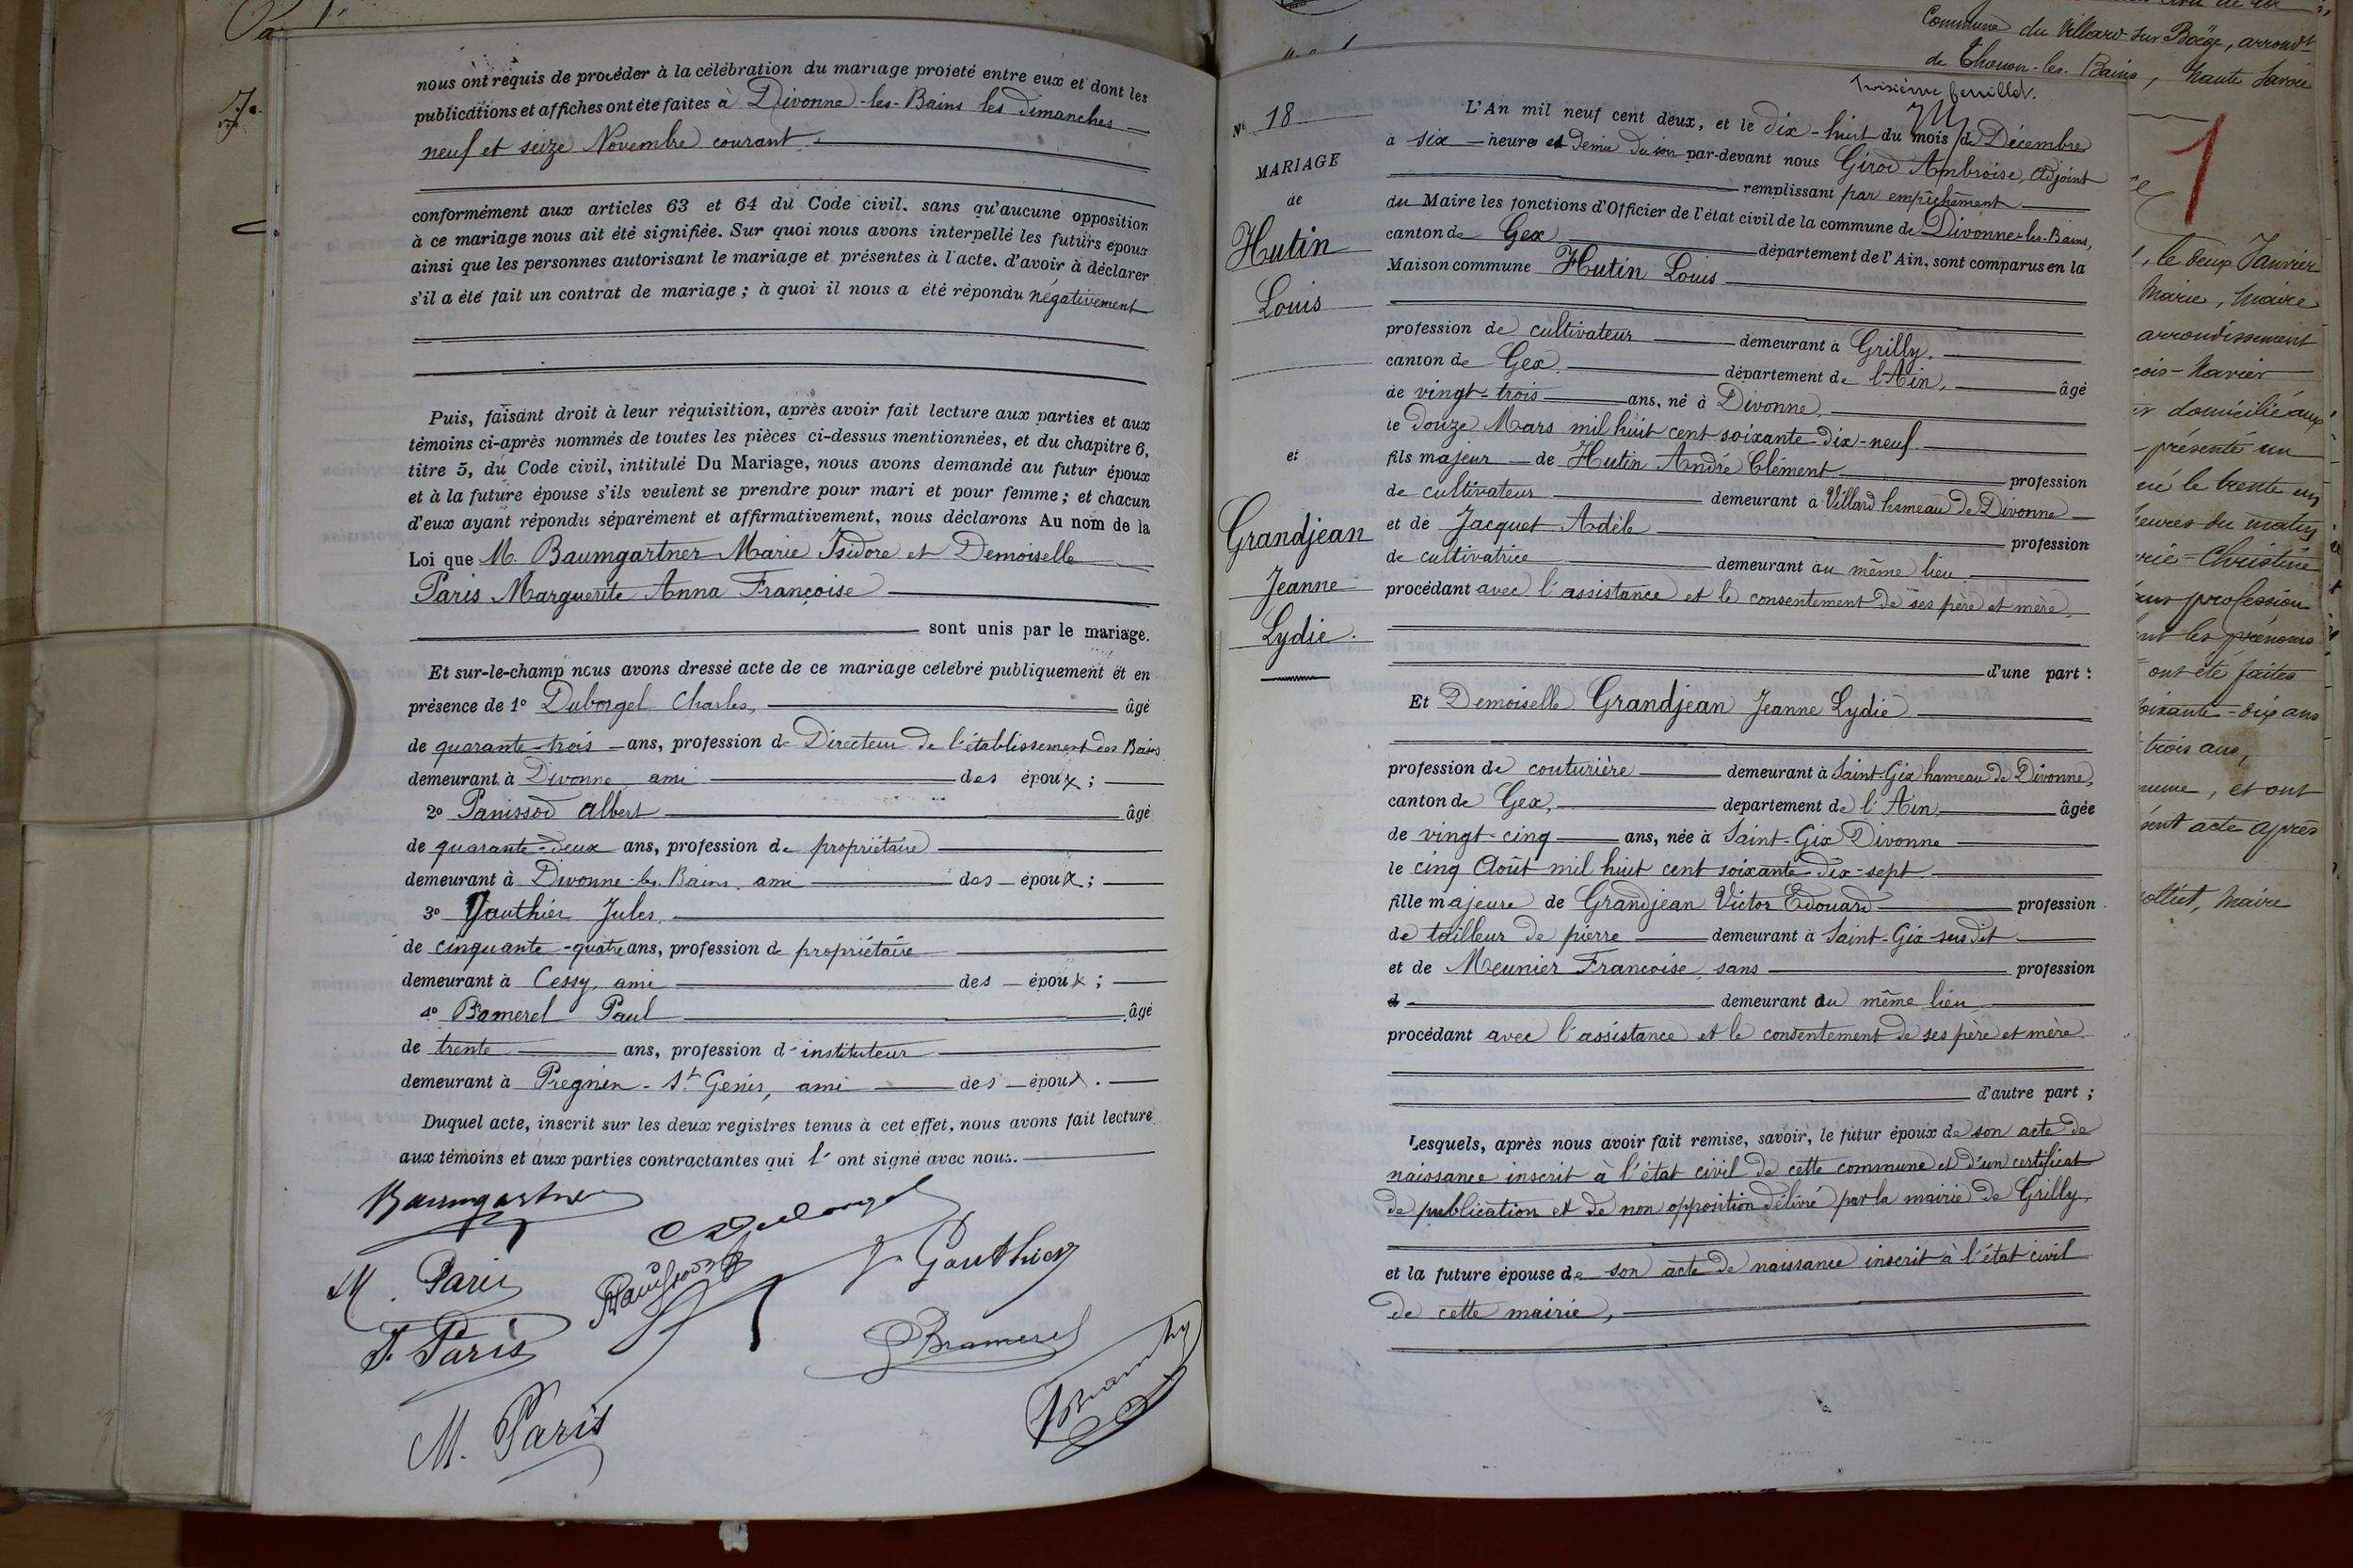 nous ont requis de procéder à la célébration du mariage projeté entre eux et dont les
publications et affiches ont été faites à Divonne-les-Bains les dimanches
neuf et seize Novembre courant
conformément aux articles 63 et 64 du Code civil. sans qu'aucune opposition
à ce mariage nous ait été signifiée. Sur quoi nous avons interpellé les futurs époux
ainsi que les personnes autorisant le mariage et présentes à l'acte. d'avoir à déclarer
s'il a été fait un contrat de mariage ; à quoi il nous a été répondu négativement
Puis, faisant droit à leur réquisition, après avoir fait lecture aux parties et aux
témoins ci-après nommés de toutes les pièces ci-dessus mentionnées, et du chapitre 6,
titre 5, du Code civil, intitulé Du Mariage, nous avons demandé au futur époux
et à la future épouse s'ils veulent se prendre pour mari et pour femme ; et chacun
d'eux ayant répondu séparément et affirmativement, nous déclarons Au nom de la
Loi que M. Baumgartner Marie Isidore et Demoiselle
Paris Marguerite Anna Françoise
sont unis par le mariage.
Et sur-le-champ nous avons dressé acte de ce mariage célébré publiquement et en
présence de 1º Duborgel Charles, âgé
de quarante-trois ans, profession de Directeur de l'établissement des Bains
demeurant à Divonne ami des époux ;
2º Panissod Albert âgé
de quarante-deux ans, profession de propriétaire
demeurant à Divonne-les-Bains, ami des époux ;
3º Gauthier Jules
de cinquante-quatre ans, profession de propriétaire
demeurant à Cessy, ami des époux ;
4º Bamerel Paul âgé
de trente ans, profession d'instituteur
demeurant à Pregnin-St Genis, ami des époux.
Duquel acte, inscrit sur les deux registres tenus à cet effet, nous avons fait lecture
aux témoins et aux parties contractantes qui l'ont signé avec nous.
Baumgartner
M. Paris
J. Gauthier
F. Paris
Bramerel
M. Paris
Commune du Villard-sur Boëge, arrondt
de Thonon-les-Bains, haute Savoie
Troisième feuillet.
Nº 18
MARIAGE
de
Hutin
Louis
et
Grandjean
Jeanne
Lydie.
L'An mil neuf cent deux, et le dix-huit du mois de Décembre
à six heures et demie du soir par-devant nous Girod Ambroise, adjoint
remplissant par empêchement
du Maire les fonctions d'Officier de l'état civil de la commune de Divonne-les-Bains,
canton de Gex département de l'Ain, sont comparus en la
Maison commune Hutin Louis
profession de cultivateur demeurant à Grilly.
canton de Gex département de l'Ain, âgé
de vingt-trois ans, né à Divonne
le douze Mars mil huit cent soixante-dix-neuf
fils majeur de Hutin André Clément profession
de cultivateur demeurant à Villard hameau de Divonne
et de Jacquet Adèle profession
de cultivatrice demeurant au même lieu
procédant avec l'assistance et le consentement de ses père et mère
d'une part :
Et Demoiselle Grandjean Jeanne Lydie
profession de couturière demeurant à Saint-Gix hameau de Divonne,
canton de Gex, département de l'Ain âgée
de vingt-cinq ans, née à Saint-Gix Divonne
le cinq Août mil huit cent soixante-dix-sept
fille majeure de Grandjean Victor Edouard profession
de tailleur de pierre demeurant à Saint-Gix susdit
et de Meunier Françoise, sans profession
d demeurant au même lieu
procédant avec l'assistance et le consentement de ses père et mère
d'autre part ;
Lesquels, après nous avoir fait remise, savoir, le futur époux de son acte de
naissance inscrit à l'état civil de cette commune et d'un certificat
de publication et de non opposition délivré par la mairie de Grilly
et la future épouse de son acte de naissance inscrit à l'état civil
de cette mairie,
1
, le deux Janvier
Marie, Maire
arrondissement
domicilié aux
présenté un
né le trente un
heures du matin
Christine
profession
les prénoms
ont été faites
soixante-dix ans
trois ans,
, et ont
acte après
, Maire